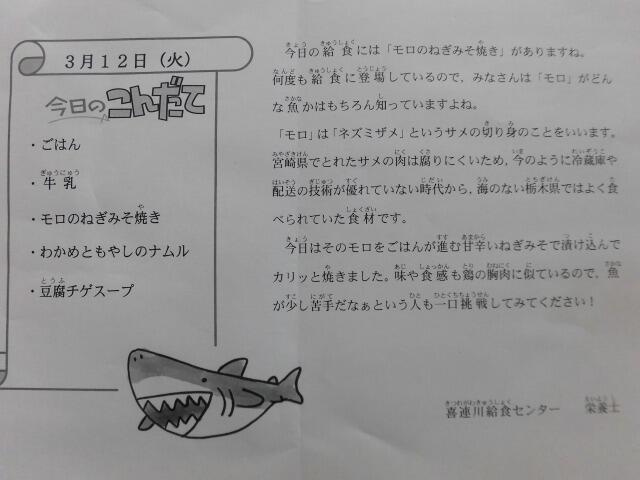 3月12日（火）
今日のこんだて
・ごはん
・牛乳
・モロのねぎみそ焼き
・わかめともやしのナムル
・豆腐チゲスープ
今日の給食には「モロのねぎみそ焼き」がありますね。
何度も給食に登場しているので，みなさんは「モロ」がどん
な魚かはもちろん知っていますよね。
「モロ」は「ネズミザメ」というサメの切り身のことをいいます。
宮崎県でとれたサメの肉は腐りにくいため，今のように冷蔵庫や
配送の技術が優れていない時代から，海のない栃木県ではよく食
べられていた食材です。
今日はそのモロをごはんが進む甘辛いねぎみそで漬け込んで
カリッと焼きました。味や食感も鶏の胸肉に似ているので，魚
が少し苦手だなぁという人も一口挑戦してみてください！
喜連川給食センター　栄養士